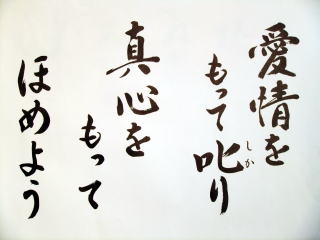 愛情を
もって叱り
しか
真心を
もって
ほめよう